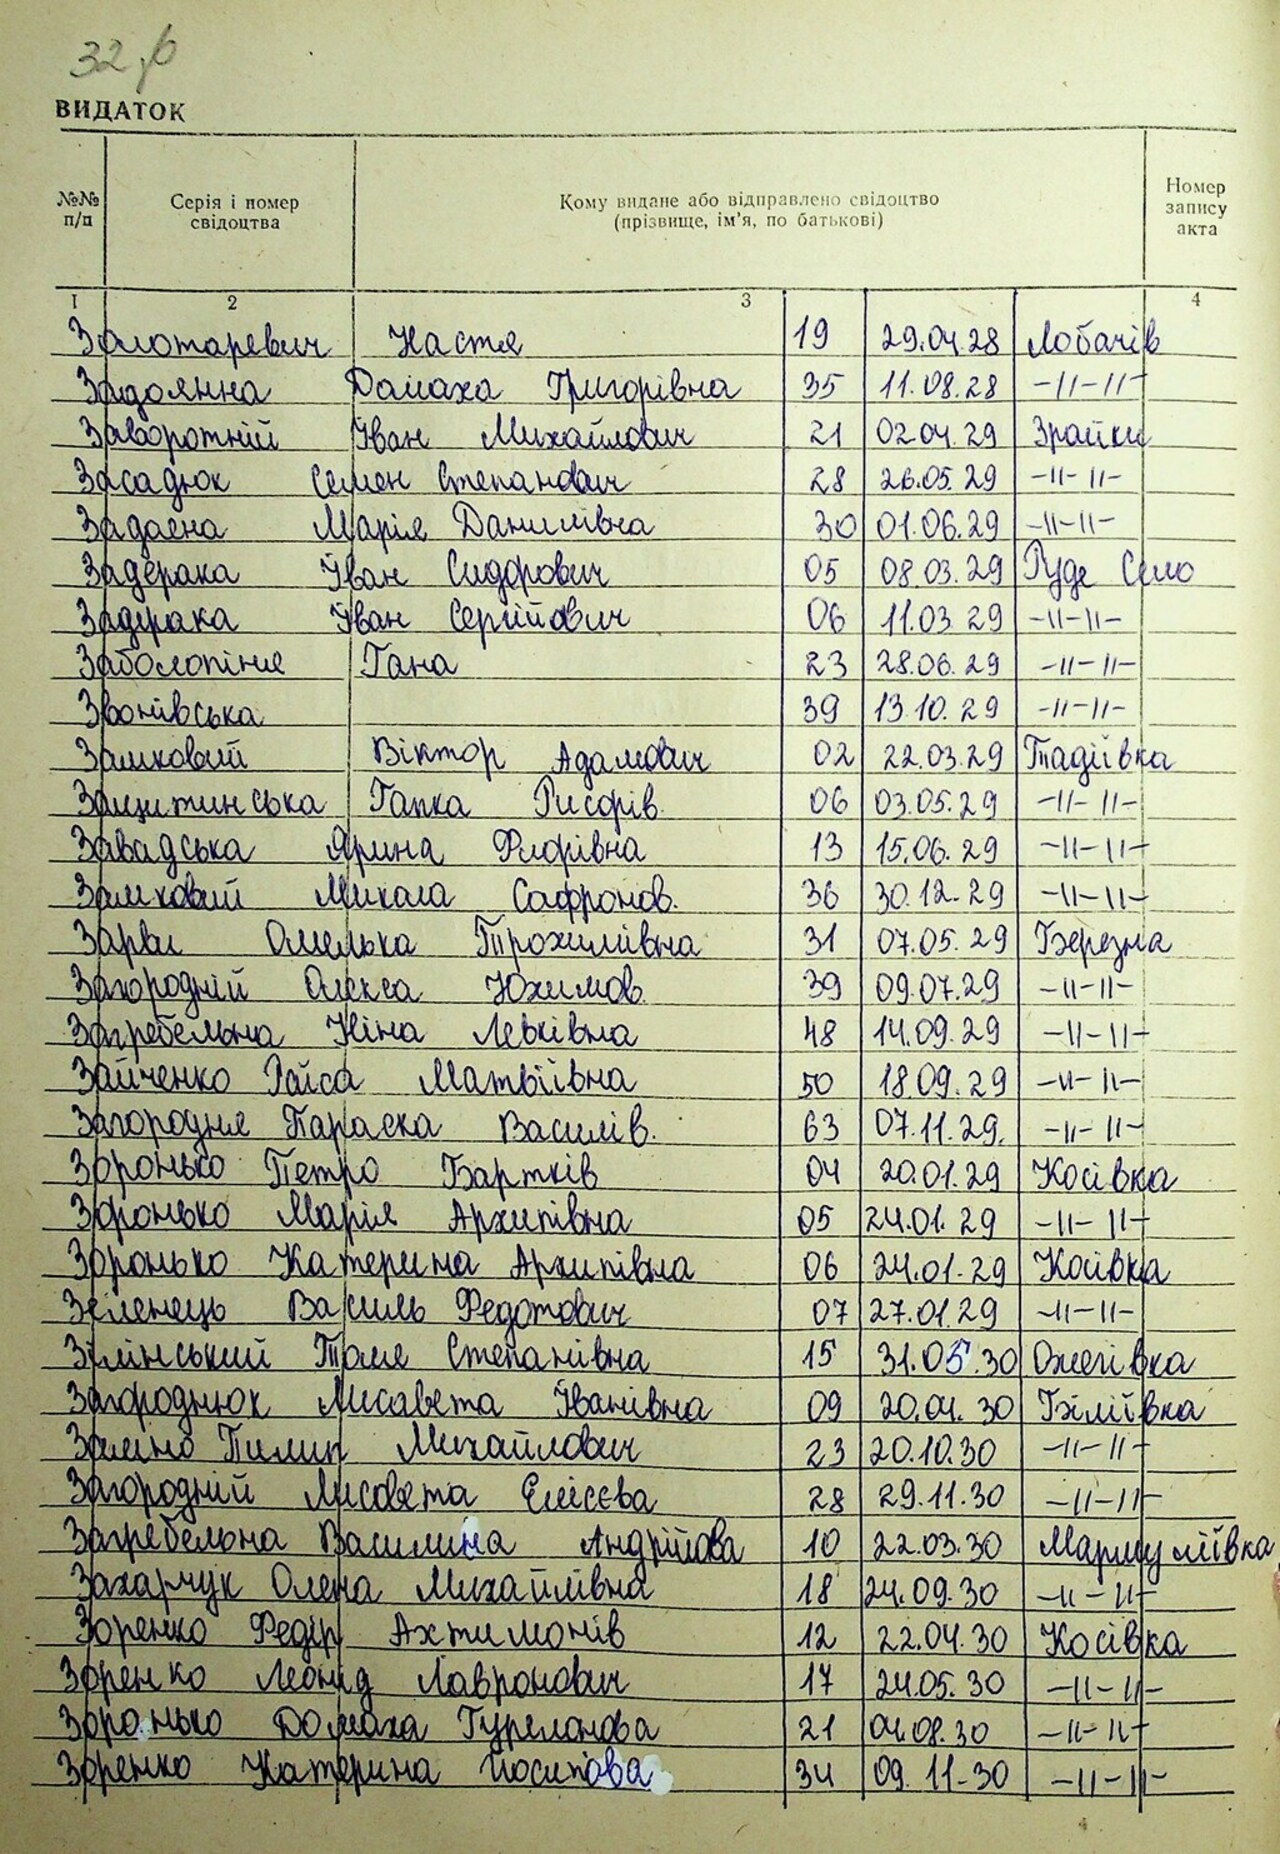 32
ВИДАТОК
№№ п/п Серія і номер свідоцтва Кому видане або відправлено свідоцтво (прізвище, ім'я, по батькові) Номер запису акта
1 2 3 4
Золотаревич Настя 19 29.04.28 Лобачів
Задоянна Домаха Григорівна 35 11.08.28 -||-||-
Заворотній Іван Михайлович 21 02.04.29 Зрайки
Засаднюк Семен Степанович 28 26.05.29 -||-||-
Задаєна Марія Данилівна 30 01.06.29 -||-||-
Задерака Іван Сидорович 05 08.03.29 Руде Село
Задерака Іван Сергійович 06 11.03.29 -||-||-
Гана 23 28.06.29 -||-||-
Звонівська 39 13.10.29 -||-||-
Замковий Віктор Адамович 02 22.03.29 Тадіївка
Защитинська Гапка 06 03.05.29 -||-||-
Завадська Ярина Флорівна 13 15.06.29 -||-||-
Замковий Микола Сафронов. 36 30.12.29 -||-||-
Зарви Омелька Трохимівна 31 07.05.29 Березна
Загородній Олекса Юхимов. 39 09.07.29 -||-||-
Загребельна Ніна Левківна 48 14.09.29 -||-||-
Зайченко Раїса Матвіївна 50 18.09.29 -||-||-
Загородня Параска Василів. 63 07.11.29. -||-||-
Зоронько Петро Бартків 04 20.01.29 Косівка
Зоронько Марія Архипівна 05 24.01.29 -||-||-
Зоронько Катерина Архипівна 06 24.01.29 Косівка
Зеленець Василь Федотович 07 27.01.29 -||-||-
Зілінський Степанівна 15 31.05.30 Ожегівка
Загороднюк Лисавета Іванівна 09 20.04.30 Біліївка
Пилип Михайлович 23 20.10.30 -||-||-
Загородній Лисовета Елісєва 28 29.11.30 -||-||-
Загребельна Василина Андрійова 10 22.03.30
Захарчук Олена Михайлівна 18 24.09.30 -||-||-
Зоренко Федір Ахтимонів 12 22.04.30 Косівка
Зоренко Леонид Лавронович 17 24.05.30 -||-||-
Зоронько Домаха 21 04.08.30 -||-||-
Зоренко Катерина Йосипова 34 09.11.30 -||-||-